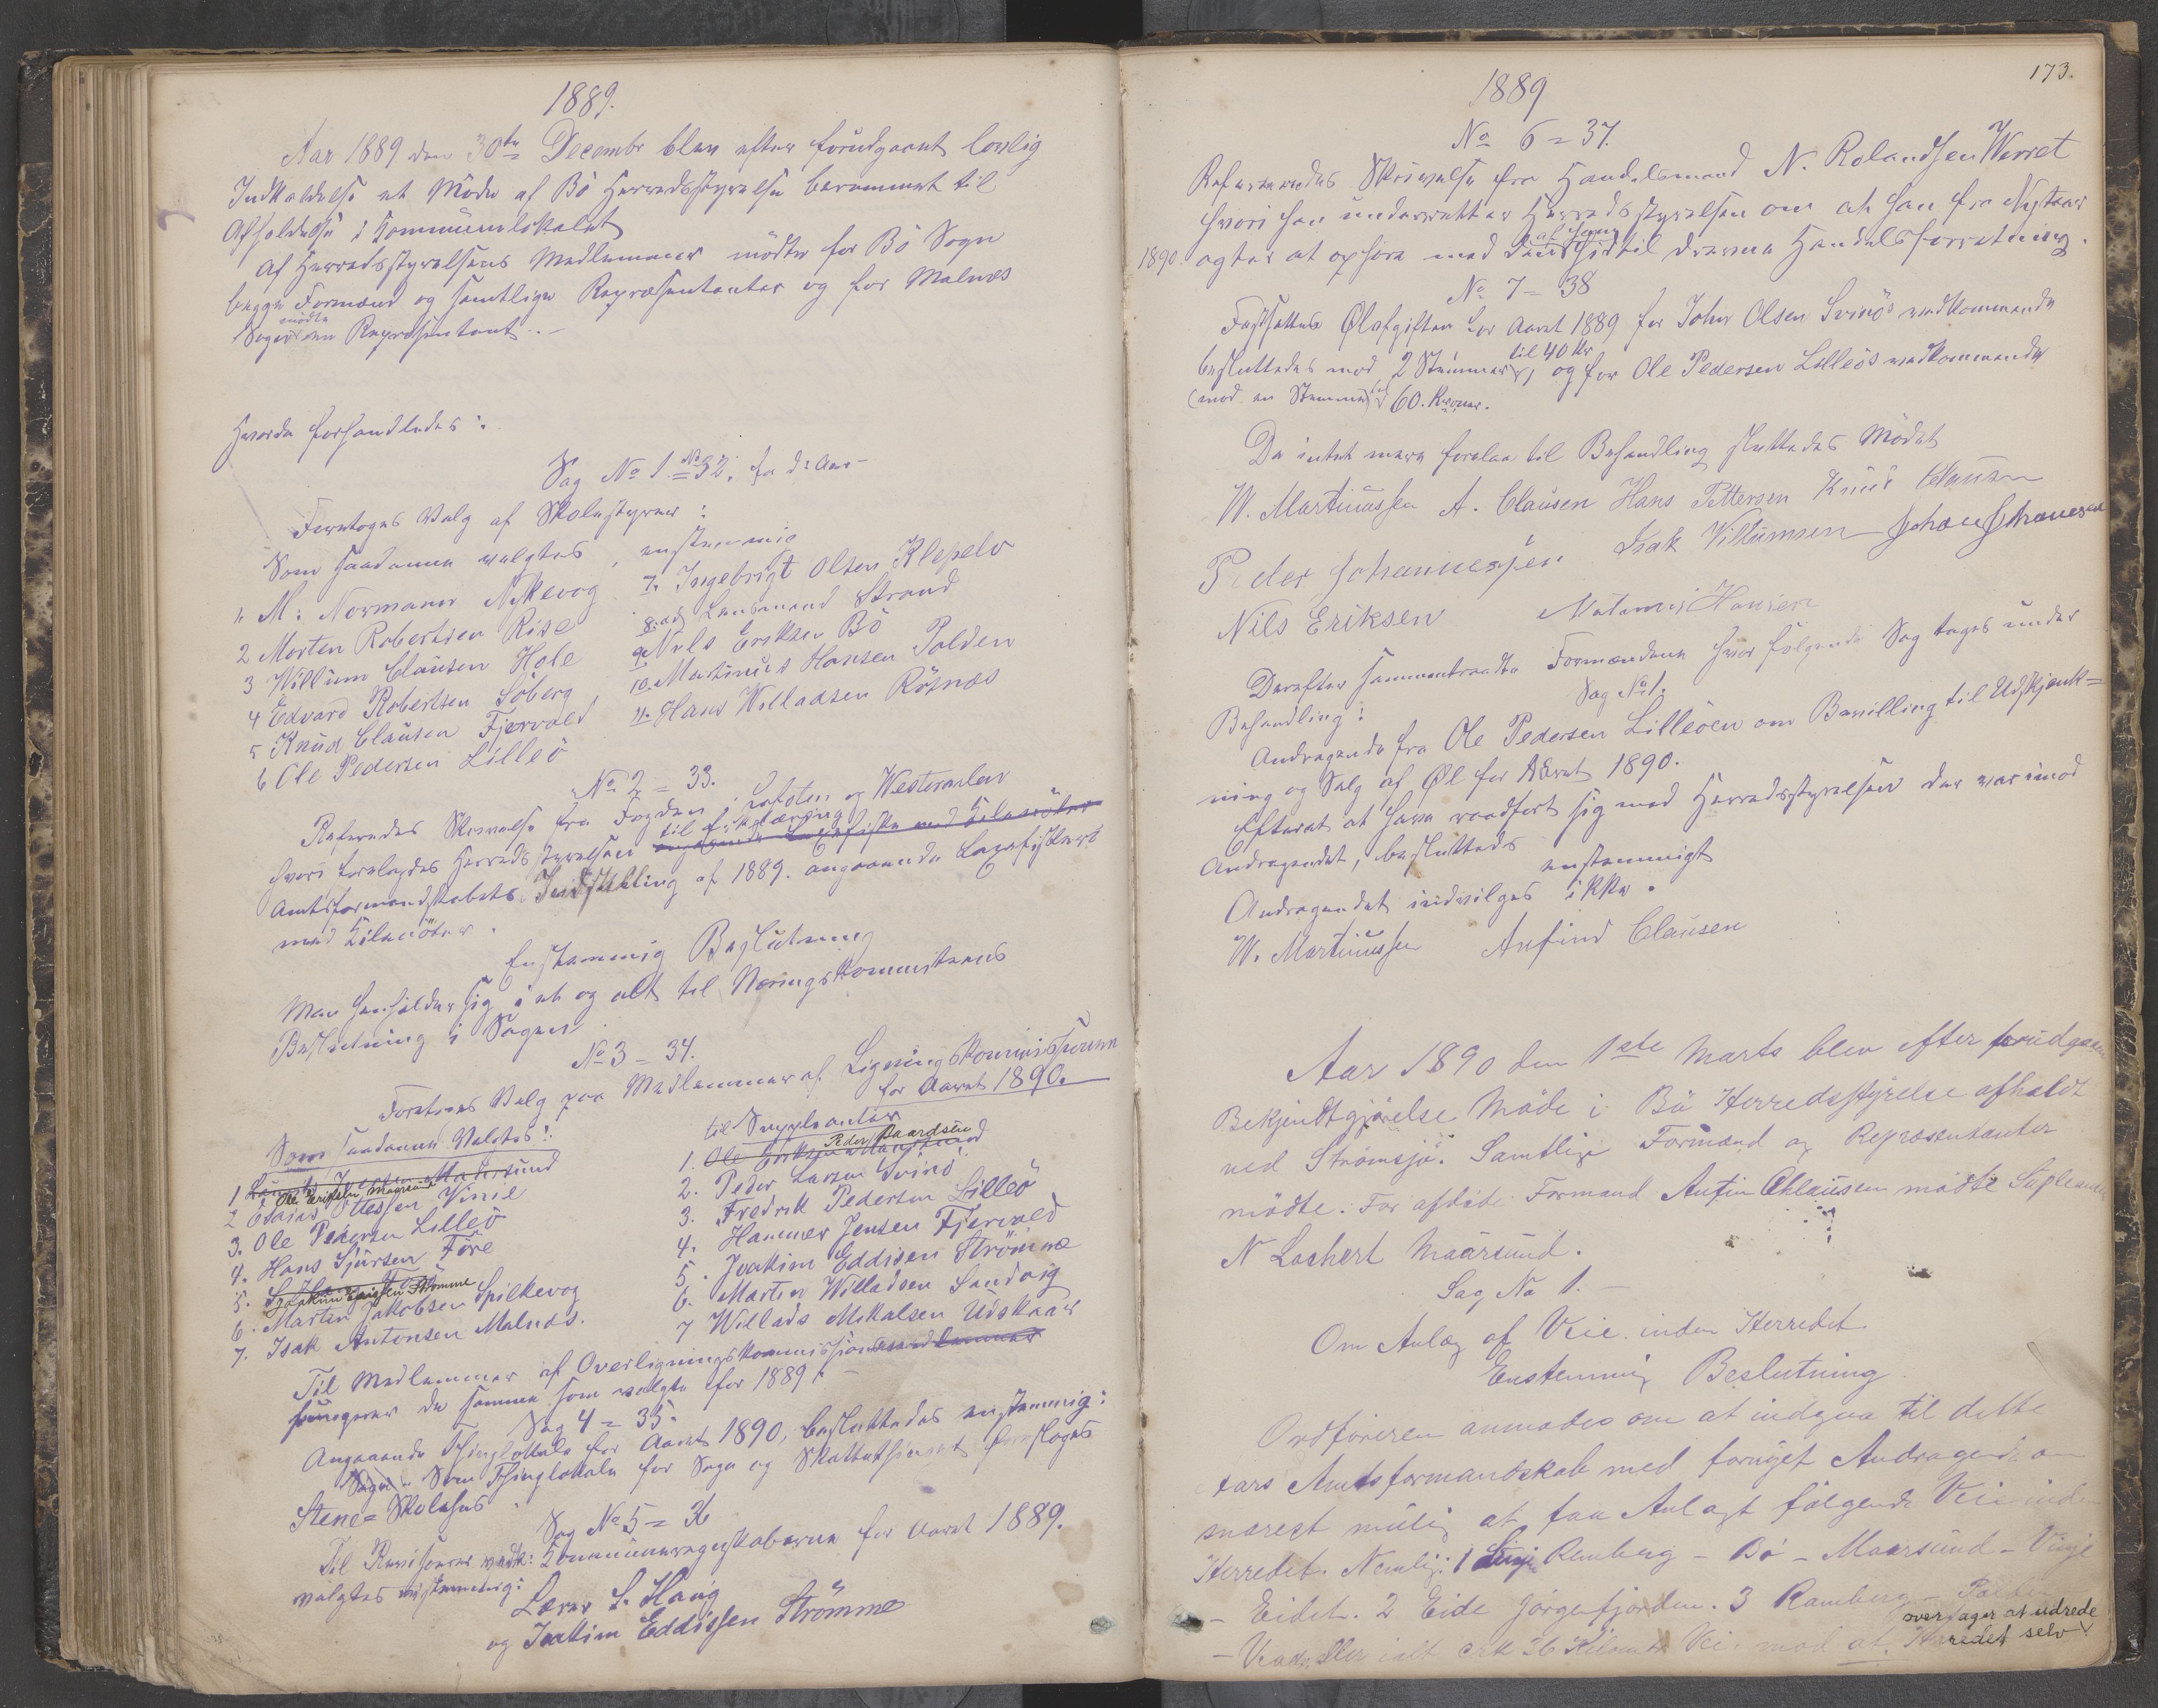 1889.
Aar 1889 den 30te Decembr blev efter forudgaaet lovlig
Indkaldelse et Møde af Bö Herredsstyrelse berammet til
Afholdelse i Kommunelokalet
Af Herredsstyrelsens Medlemmer mödte for Bö Sogn
begge Formænd og samtlige Repræsentanter og for Malnes
Sogn mödte en Repræsentant.
Hvorda forhandledes:
Sag No 1 = No 32. fra d: Aar
Foretoges Valg af Skolestyrer:
Som saadanne valgtes, enstemmig
1. M: Normann Nykevog
2 Morten Robertsen Rise
3 Willum Clausen Hole
4 Edvard Robertsen Söberg
5 Knud Clausen Fjervold
6 Ole Pedersen Lilleö
7. Ingebrigt Olsen Klepelv
8. Lensmand Strand
9. Nils Eriksen Bö
10. Martinus Hansen Polden
11. Hans Willadsen Röknes
No 2 = 33.
Refereredes Skrivelse fra Fogden i Lofoten og Westeraalen
hvori forelagdes Herredsstyrelsen til Erklæring
Amtsformandskabets Indstilling af 1889. angaaende Logefiskeri
med Kilenöter.
Enstemmig Beslutning
Man henholder sig i et og alt til Næringskommiteens
Beslutning i Sagen
No 3 = 34.
Foretoges Valg paa Medlemmer af Ligningskommissionen
for Aaret 1890.
Som saadanne Valgtes:
1 Ole Eriksen Maarsund
2 Esaias Ottessen Vinie
3. Ole Pedersen Lilleö
4. Hans Sjursen Före
5. Joakim Eddissen Strömme
6. Martin Jakobsen Spilkevog
7. Isak Antonsen Malnes.
til Suppleanter
1. Peder Baardsen
2. Peder Larsen Svinö
3. Fredrik Pedersen Lilleö
4. Hammer Jensen Fjervold
5. Joakim Eddisen Strömme
6. Martin Willadsen Sandvig
7 Willads Mikalsen Udskaar
Til Medlemmer af Overligningskommissionen
fungerer de samme som valgte for 1889.
Sag 4 = 35.
Angaaende Thinglokale for Aaret 1890, besluttedes enstemmig:
Som Thinglokale for Sage og Skattethinget foresloges
Stene Skolehus
Sag No 5 = 36
Til Revisorer vedk: Kommuneregnskaberne for Aaret 1889.
valgtes enstemmig:
Lærer S. Haug
og Joakim Eddissen Strömme
173.
1889
No 6 = 37.
Refereredes Skrivelse fra Handelsmand N. Rolandsen Werret
hvori han underretter Herredsstyrelsen om at han fra Nytaar
1890 agter at ophöre med den af ham hidtil drevne Handelsforretning.
No 7 = 38
Fastsattes Ølafgiften for Aaret 1889 for Johs Olsen Svinös vedkommende
besluttedes mod 2 Stemmer til 40 Kr, og for Ole Pedersen Lilleös vedkommende
(mod en Stemme) til 60. Kroner.
Da intet mere forelaa til Behandling sluttedes Mödet
W. Martinussen A. Clausen Hans Pettersen Knud Clausen
Peder Johannessen Isak Villumsen Johan Johannesen
Nils Eriksen Hansen
Derefter sammentraadte Formændene hvor fölgende Sag toges under
Behandling:
Sag No 1.
Andragende fra Ole Pedersen Lilleöen om Bevilling til Udskjænk=
ning og Salg af Øl for Aaret 1890.
Efterat at have raadfört sig med Herredsstyrelsen der var imod
Andragendet, besluttedes enstemmigt
Andragendet indvilges ikke.
W. Martinussen Anfind Clausen
Aar 1890 den 1ste Marts blev efter forudgaaen
Bekjendtgjörelse Möde i Bö Herredsstyrelse afholdt
ved Strömsjö. Samtlige Formænd og Repræsentanter
mödte. For afdöde Formand Anfin Chlausen mödte Supleanten
N Lockert Maarsund.
Sag No 1.
Om Anlæg af Veie inden Herredet
Enstemmig Beslutning
Ordföreren anmodes om at indgaa til dette
aars Amtsformandskab med fornyet Andragende om
snarest mulig at faa Anlagt fölgende Veie inden
Herredet. Nemlig: 1 Linje Ramberg - Bö - Maarsund - Vinje
- Eidet. 2 Eide Jörgefjorden. 3 Ramberg - Polden
- eller ialt cirk 36 Kilom Vei mod at Herredet selv
overtager at udrede